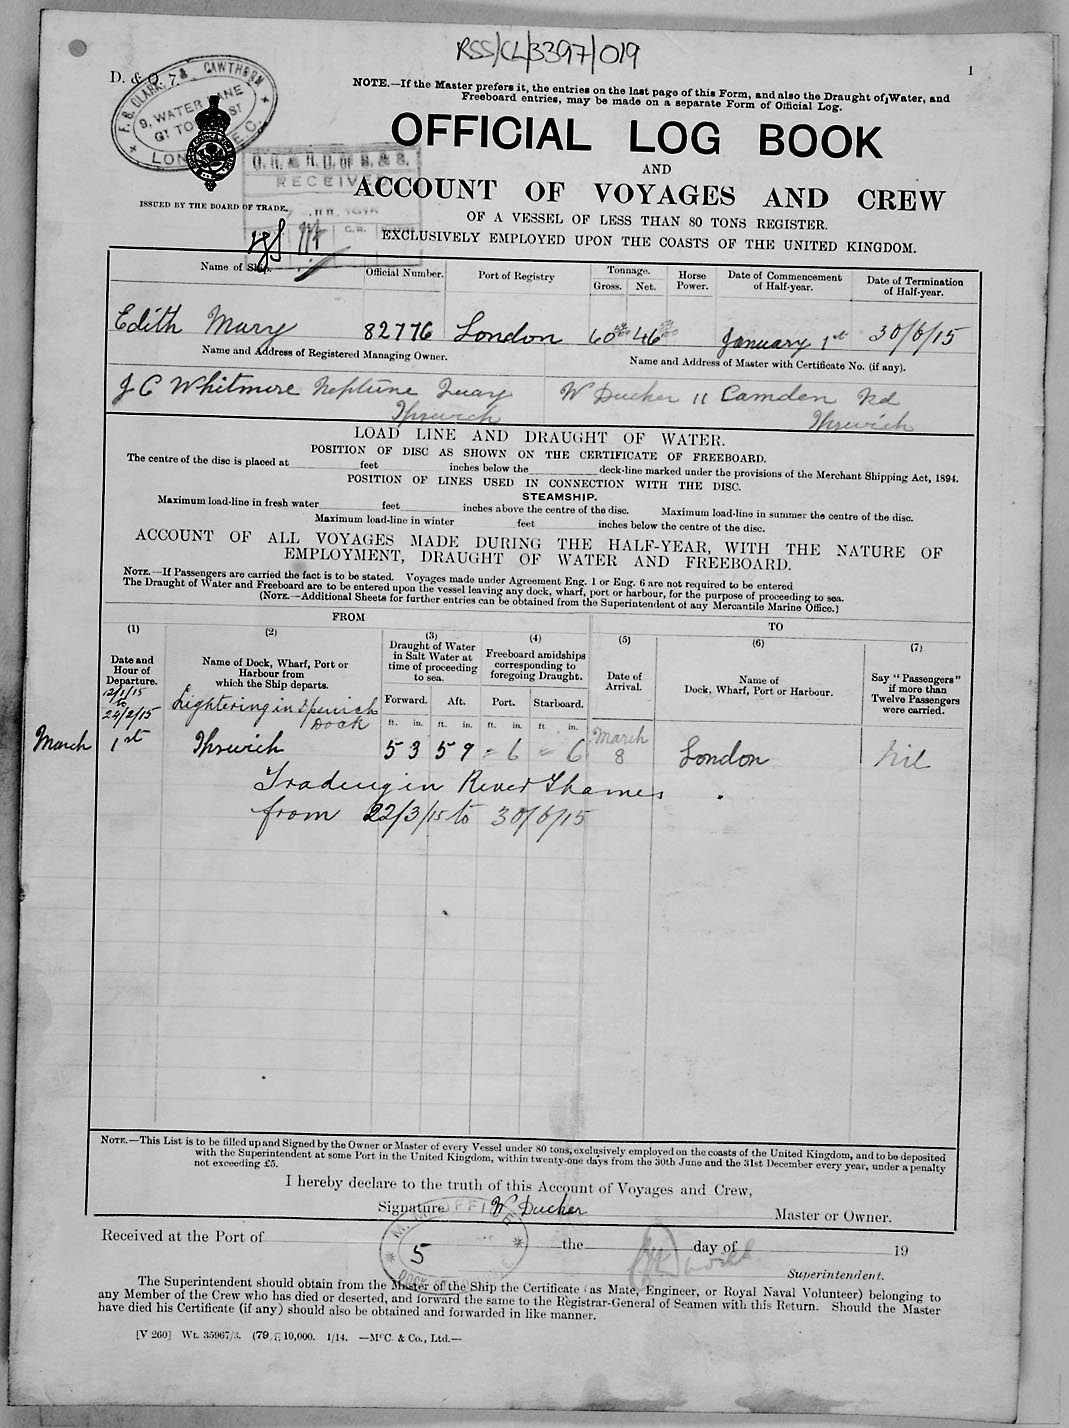 RSS/CL/3397/019
1
D. & O. 7
F. B. CLARK, & CAWTHORN
9, WATER LANE
GT TOWER ST
LONDON E.C.
NOTE.—If the Master prefers it, the entries on the last page of this Form, and also the Draught of Water, and
Freeboard entries, may be made on a separate Form of Official Log.
OFFICIAL LOG BOOK
AND
RECEIVED
ACCOUNT OF VOYAGES AND CREW
ISSUED BY THE BOARD OF TRADE.
OF A VESSEL OF LESS THAN 80 TONS REGISTER.
C.R.
EXCLUSIVELY EMPLOYED UPON THE COASTS OF THE UNITED KINGDOM.
Name of Ship. Official Number. Port of Registry Tonnage. Gross. Net. Horse Power. Date of Commencement of Half-year. Date of Termination of Half-year.
Edith Mary 82776 London 60 46 January 1st 30/6/15
Name and Address of Registered Managing Owner. Name and Address of Master with Certificate No. (if any).
J C Whitmore Neptune Quay W Ducker 11 Camden Rd
Ipswich Ipswich
LOAD LINE AND DRAUGHT OF WATER.
POSITION OF DISC AS SHOWN ON THE CERTIFICATE OF FREEBOARD.
The centre of the disc is placed at feet inches below the deck-line marked under the provisions of the Merchant Shipping Act, 1894.
POSITION OF LINES USED IN CONNECTION WITH THE DISC.
STEAMSHIP.
Maximum load-line in fresh water feet inches above the centre of the disc. Maximum load-line in summer the centre of the disc.
Maximum load-line in winter feet inches below the centre of the disc.
ACCOUNT OF ALL VOYAGES MADE DURING THE HALF-YEAR, WITH THE NATURE OF
EMPLOYMENT, DRAUGHT OF WATER AND FREEBOARD.
NOTE.—If Passengers are carried the fact is to be stated. Voyages made under Agreement Eng. 1 or Eng. 6 are not required to be entered
The Draught of Water and Freeboard are to be entered upon the vessel leaving any dock, wharf, port or harbour, for the purpose of proceeding to sea.
(NOTE.—Additional Sheets for further entries can be obtained from the Superintendent of any Mercantile Marine Office.)
FROM TO
(1) (2) (3) (4) (5) (6) (7)
Date and Hour of Departure.
Name of Dock, Wharf, Port or Harbour from which the Ship departs.
Draught of Water in Salt Water at time of proceeding to sea.
Freeboard amidships corresponding to foregoing Draught.
Date of Arrival.
Name of Dock, Wharf, Port or Harbour.
Say "Passengers" if more than Twelve Passengers were carried.
Forward. Aft. Port. Starboard.
ft. in. ft. in. ft. in. ft. in.
12/1/15 to 24/2/15 Lightering in Ipswich Dock
March 1st Ipswich 5 3 5 9 = 6 = 6 March 8 London Nil
Trading in River Thames
from 22/3/15 to 30/6/15
NOTE.—This List is to be filled up and Signed by the Owner or Master of every Vessel under 80 tons, exclusively employed on the coasts of the United Kingdom, and to be deposited
with the Superintendent at some Port in the United Kingdom, within twenty-one days from the 30th June and the 31st December every year, under a penalty
not exceeding £5.
I hereby declare to the truth of this Account of Voyages and Crew,
Signature W Ducker Master or Owner.
Received at the Port of the day of 19
5
Superintendent.
The Superintendent should obtain from the Master of the Ship the Certificate (as Mate, Engineer, or Royal Naval Volunteer) belonging to
any Member of the Crew who has died or deserted, and forward the same to the Registrar-General of Seamen with this Return. Should the Master
have died his Certificate (if any) should also be obtained and forwarded in like manner.
[V 260] Wt. 35967/3. (79) 10,000. 1/14. —McC. & Co., Ltd.—